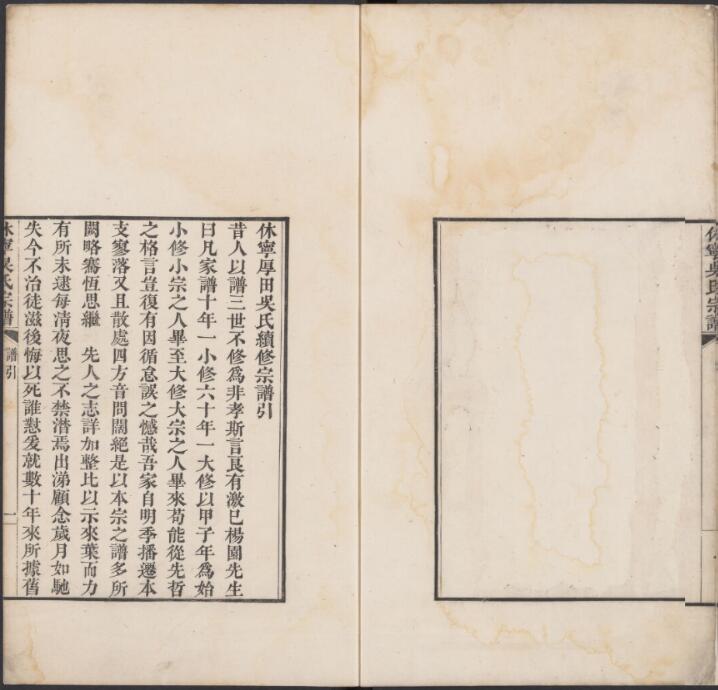 休寧吳氏宗譜
休寧厚田吳氏續修宗譜引
昔人以譜三世不修爲非孝斯言良有激已楊園先生
曰凡家譜十年一小修六十年一大修以甲子年爲始
小修小宗之人畢至大修大宗之人畢來苟能從先哲
之格言豈復有因循怠誤之憾哉吾家自明季播遷本
支寥落又且散處四方音問闊絕是以本宗之譜多所
闕略騫恆思繼　先人之志詳加整比以示來葉而力
有所未逮每清夜思之不禁潸焉出涕顧念歲月如馳
失今不治徒滋後悔以死誰懟爰就數十年來所據舊
休寧吳氏宗譜
譜引
一